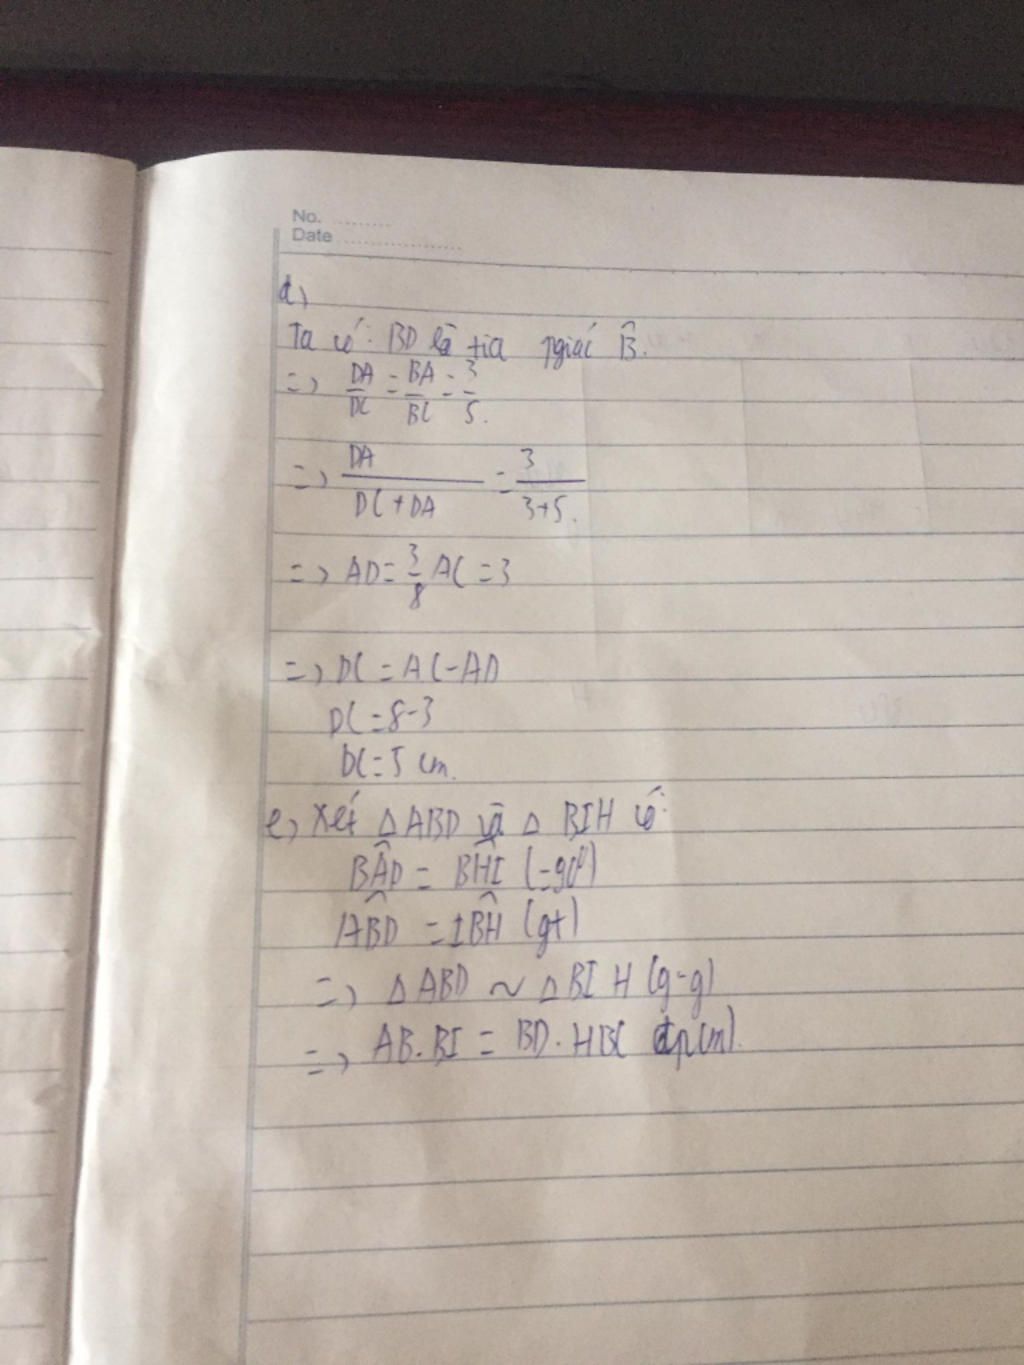 No. ..........
Date ....................
d,
Ta có: BD là tia pgiác B̂.
=> DA/DC = BA/BC = 3/5.
=> DA/(DC+DA) = 3/(3+5).
=> AD = 3/8 AC = 3
=> DC = AC-AD
DC = 8-3
DC = 5 cm.
e, Xét Δ ABD và Δ BIH có:
BÂD = BĤI (=90⁰)
AB̂D = IB̂H (gt)
=> Δ ABD ~ Δ BIH (g-g)
=> AB.BI = BD.HB( đpcm).